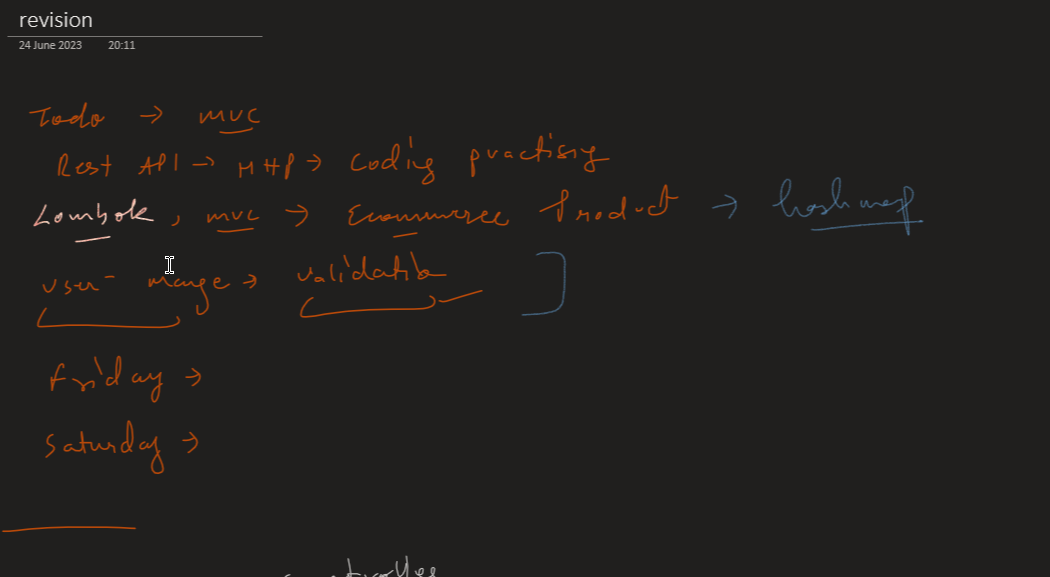 revision
24 June 2023 20:11
Todo → mvc
Rest API → HHP → coding practising
Lombok, mvc → Ecommerce Product → hashmap
user- mange → validation
Friday →
Saturday →